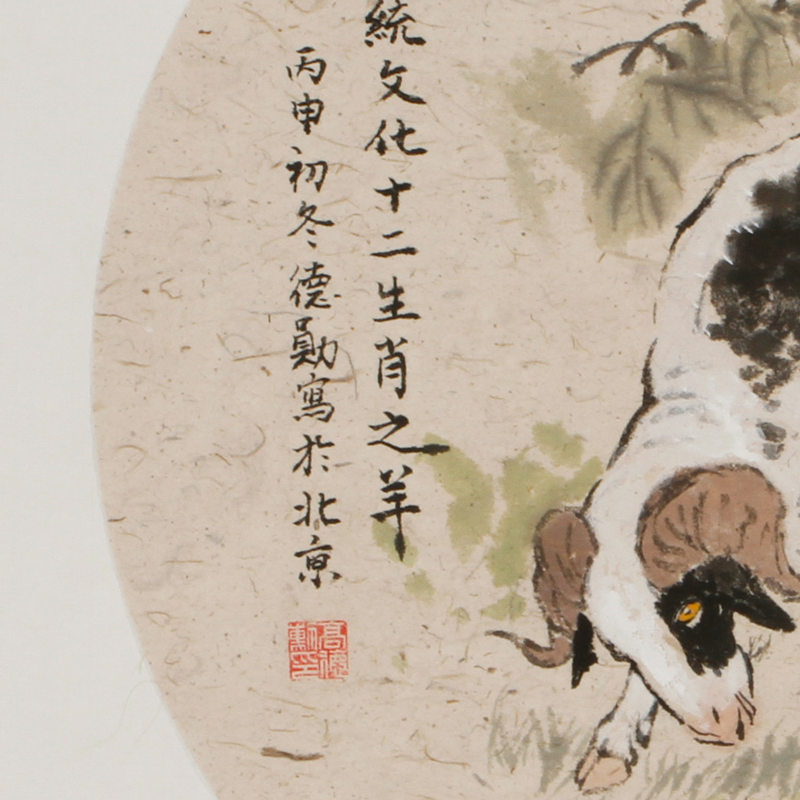 統文化十二生肖之羊
丙申初冬德勛寫於北京
高德勳印